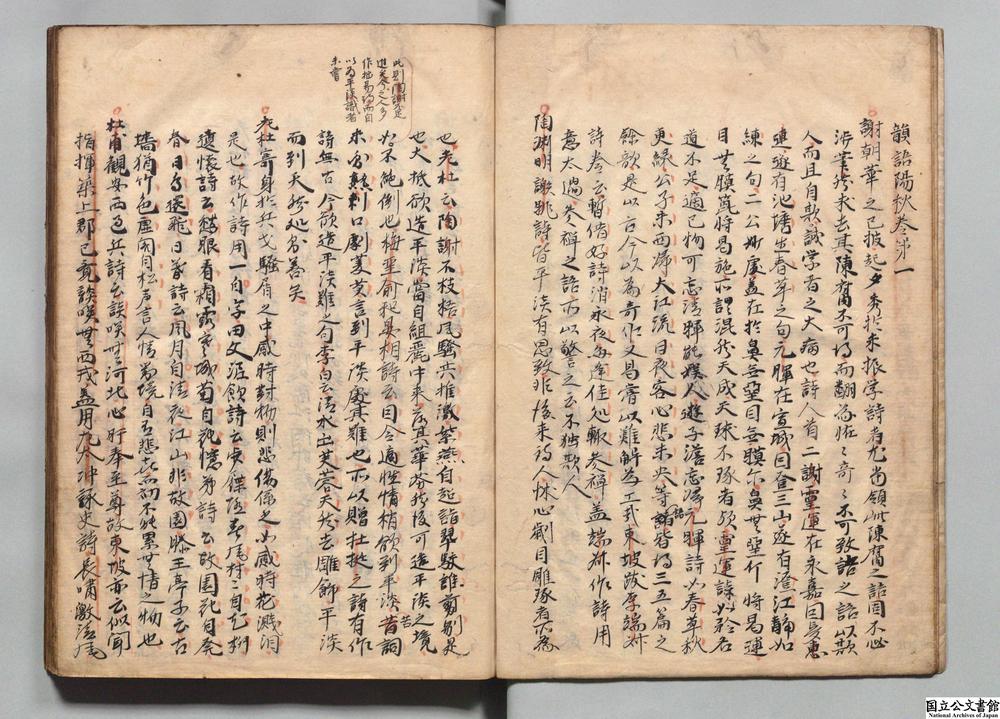 韻語陽秋巻第一
謝朝華之已披起夕秀於未振学詩者尤当領此陳腐之語固不必
渉筆然求去其陳腐不可得而翻為恠々奇々不可致詰之語以欺
人而且自欺誠学者之大病也詩人首二謝霊運在永嘉因夢恵
連遂有池塘生春草之句元暉在宣城因登三山遂有澄江静如
練之句二公妙處盖在於鼻無堊目無膜尓鼻無堊斤将曷運
目無膜篦将曷施所謂混然天成天球不琢者歟霊運詩如矜名
道不足適己物可忘清暉能娯人遊子澹忘帰元暉詩如春草秋
更緑公子未西帰大江流日夜客心悲未央等語皆得三百五篇之
餘韵是以古今以為奇作又曷嘗以難解為工哉東坡跋李端叔
詩巻云暫借好詩消永夜毎逢佳処輒参禅盖端叔作詩用
意太過参禅之語所以警之云不独欺人
陶渊明謝朓詩皆平淡有思致非後来詩人怵心劌目雕琢者所為
也老杜云陶謝不枝梧風騒共推激紫燕自超詣翠駮誰剪剔是
也大抵欲造平淡当自組麗中来落其華芬然後可造平淡之境
如此則陶謝不足
進矣今之人多
作拙易詩而自
以為平淡識者
未嘗
不絶倒也梅聖俞和晏相詩云因今適性情稍欲到平淡苦詞
未圓熟刺口劇菱芡言到平淡處甚難也所以贈杜挺之詩有作
詩無古今欲造平淡難之句李白云清水出芙蓉天然去雕飾平淡
而到天然処則善矣
老杜寄身於兵戈騒屑之中感時対物則悲傷係之如感時花濺泪
是也故作詩用一自字田父泥飲詩云歩屧随春風村々自花柳
遣懐詩云愁眼看霜露寒城菊自花憶弟詩云故園花自発
春日鳥還飛日暮詩云風月自清夜江山非故園滕王亭子云古
墻猶竹色虚閣自松声言人情對境自有悲喜而初不能累無情之物也
杜甫観安西過兵詩云談笑無河北心肝奉至尊故東坡亦云似聞
指揮築上郡已覚談笑無西戎盖用左太冲詠史詩長嘯激清風